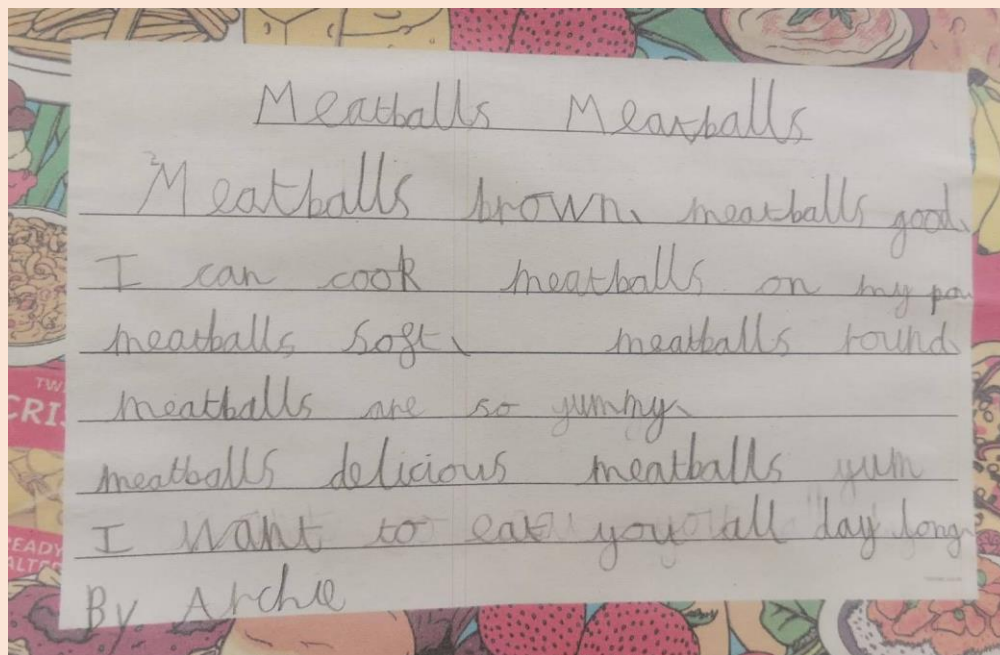 Meatballs Meatballs
Meatballs brown, meatballs good,
I can cook meatballs on my pan
meatballs soft, meatballs round
meatballs are so yummy,
meatballs delicious meatballs yum
I want to eat you all day long
By Archie